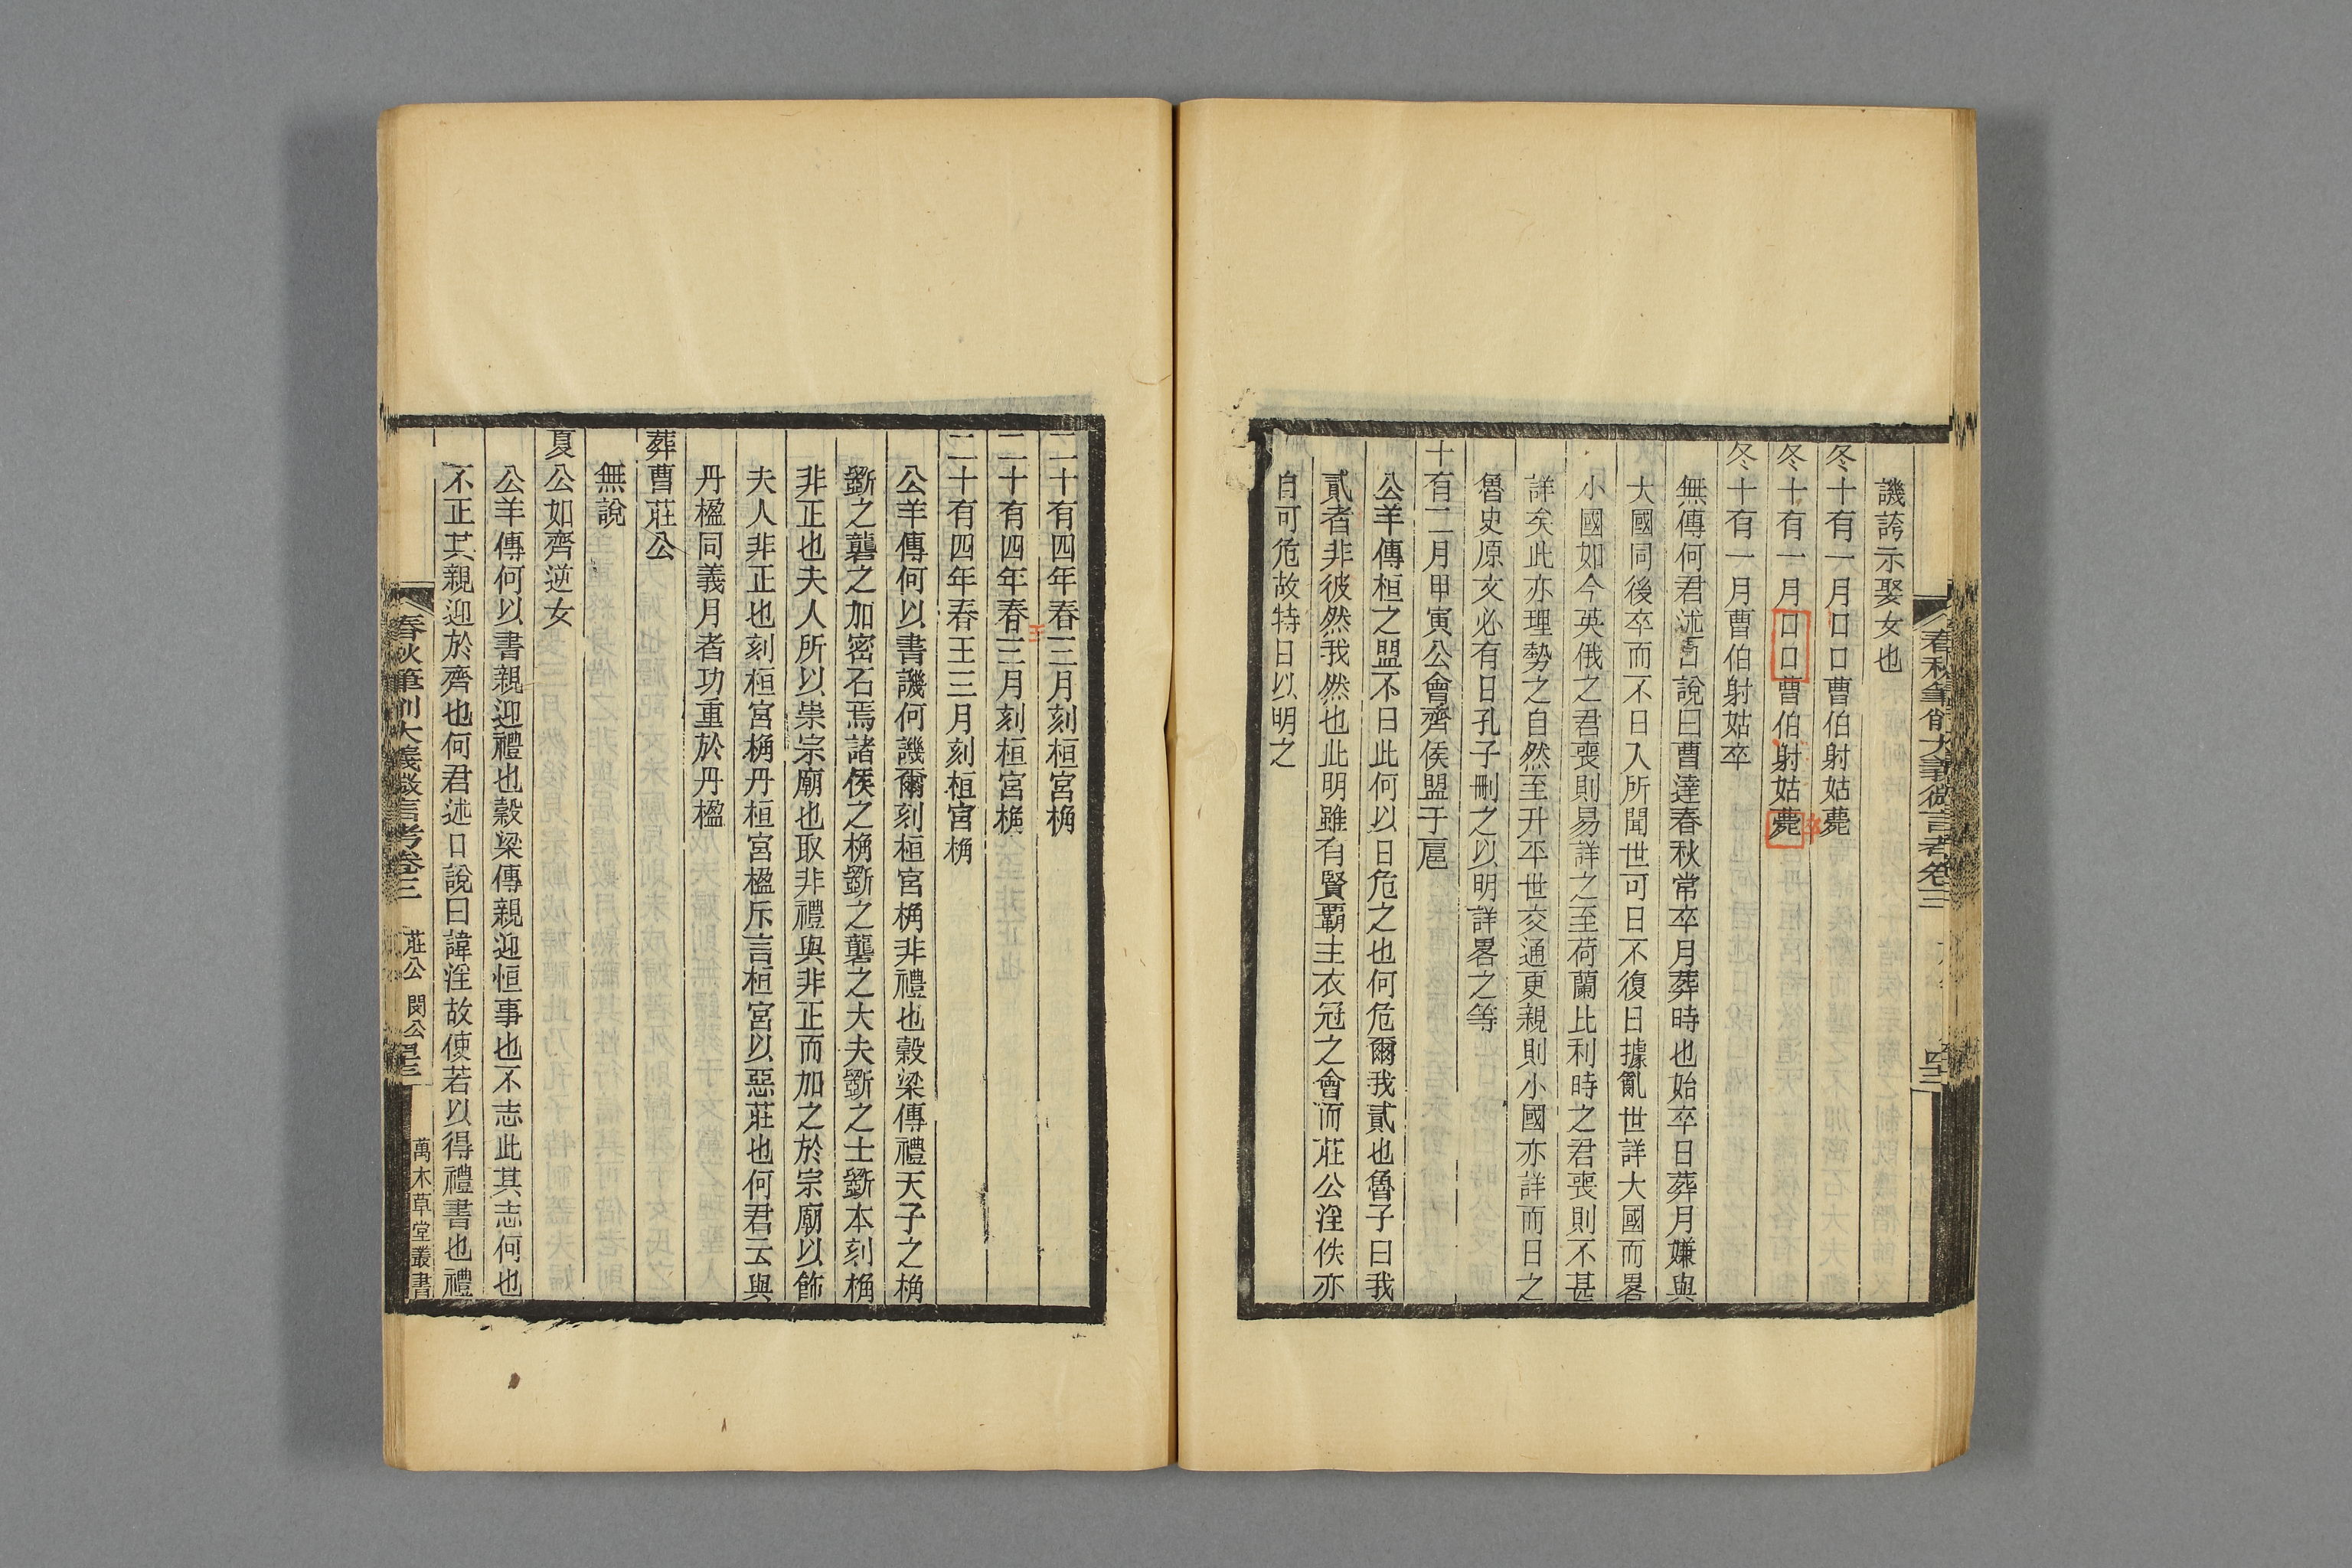 譏誇示娶女也
冬十有一月口口曹伯射姑薨
冬十有一月口口曹伯射姑薨
卒
冬十有一月曹伯射姑卒
無傳何君述口說曰曹達春秋常卒月葬時也始卒日葬月嫌與
大國同後卒而不日入所聞世可日不復日據亂世詳大國而畧
小國如今英俄之君喪則易詳之至荷蘭比利時之君喪則不甚
詳矣此亦理勢之自然至升平世交通更親則小國亦詳而日之
魯史原文必有日孔子刪之以明詳畧之等
十有二月甲寅公會齊侯盟于扈
公羊傳桓之盟不日此何以日危之也何危爾我貳也魯子曰我
貳者非彼然我然也此明雖有賢霸主衣冠之會而莊公淫佚亦
自可危故特日以明之
春秋筆削大義微言考卷三
二十有四年春三月刻桓宮桷
二十有四年春三月刻桓宮桷
王
二十有四年春王三月刻桓宮桷
公羊傳何以書譏何譏爾刻桓宮桷非禮也穀梁傳禮天子之桷
斵之礱之加密石焉諸侯之桷斵之礱之大夫斵之士斵本刻桷
非正也夫人所以崇宗廟也取非禮與非正而加之於宗廟以飾
夫人非正也刻桓宮桷丹桓宮楹斥言桓宮以惡莊也何君云與
丹楹同義月者功重於丹楹
葬曹莊公
無說
夏公如齊逆女
公羊傳何以書親迎禮也穀梁傳親迎恒事也不志此其志何也
不正其親迎於齊也何君述口說曰諱淫故使若以得禮書也禮
春秋筆削大義微言考卷三 莊公 閔公
萬木草堂叢書